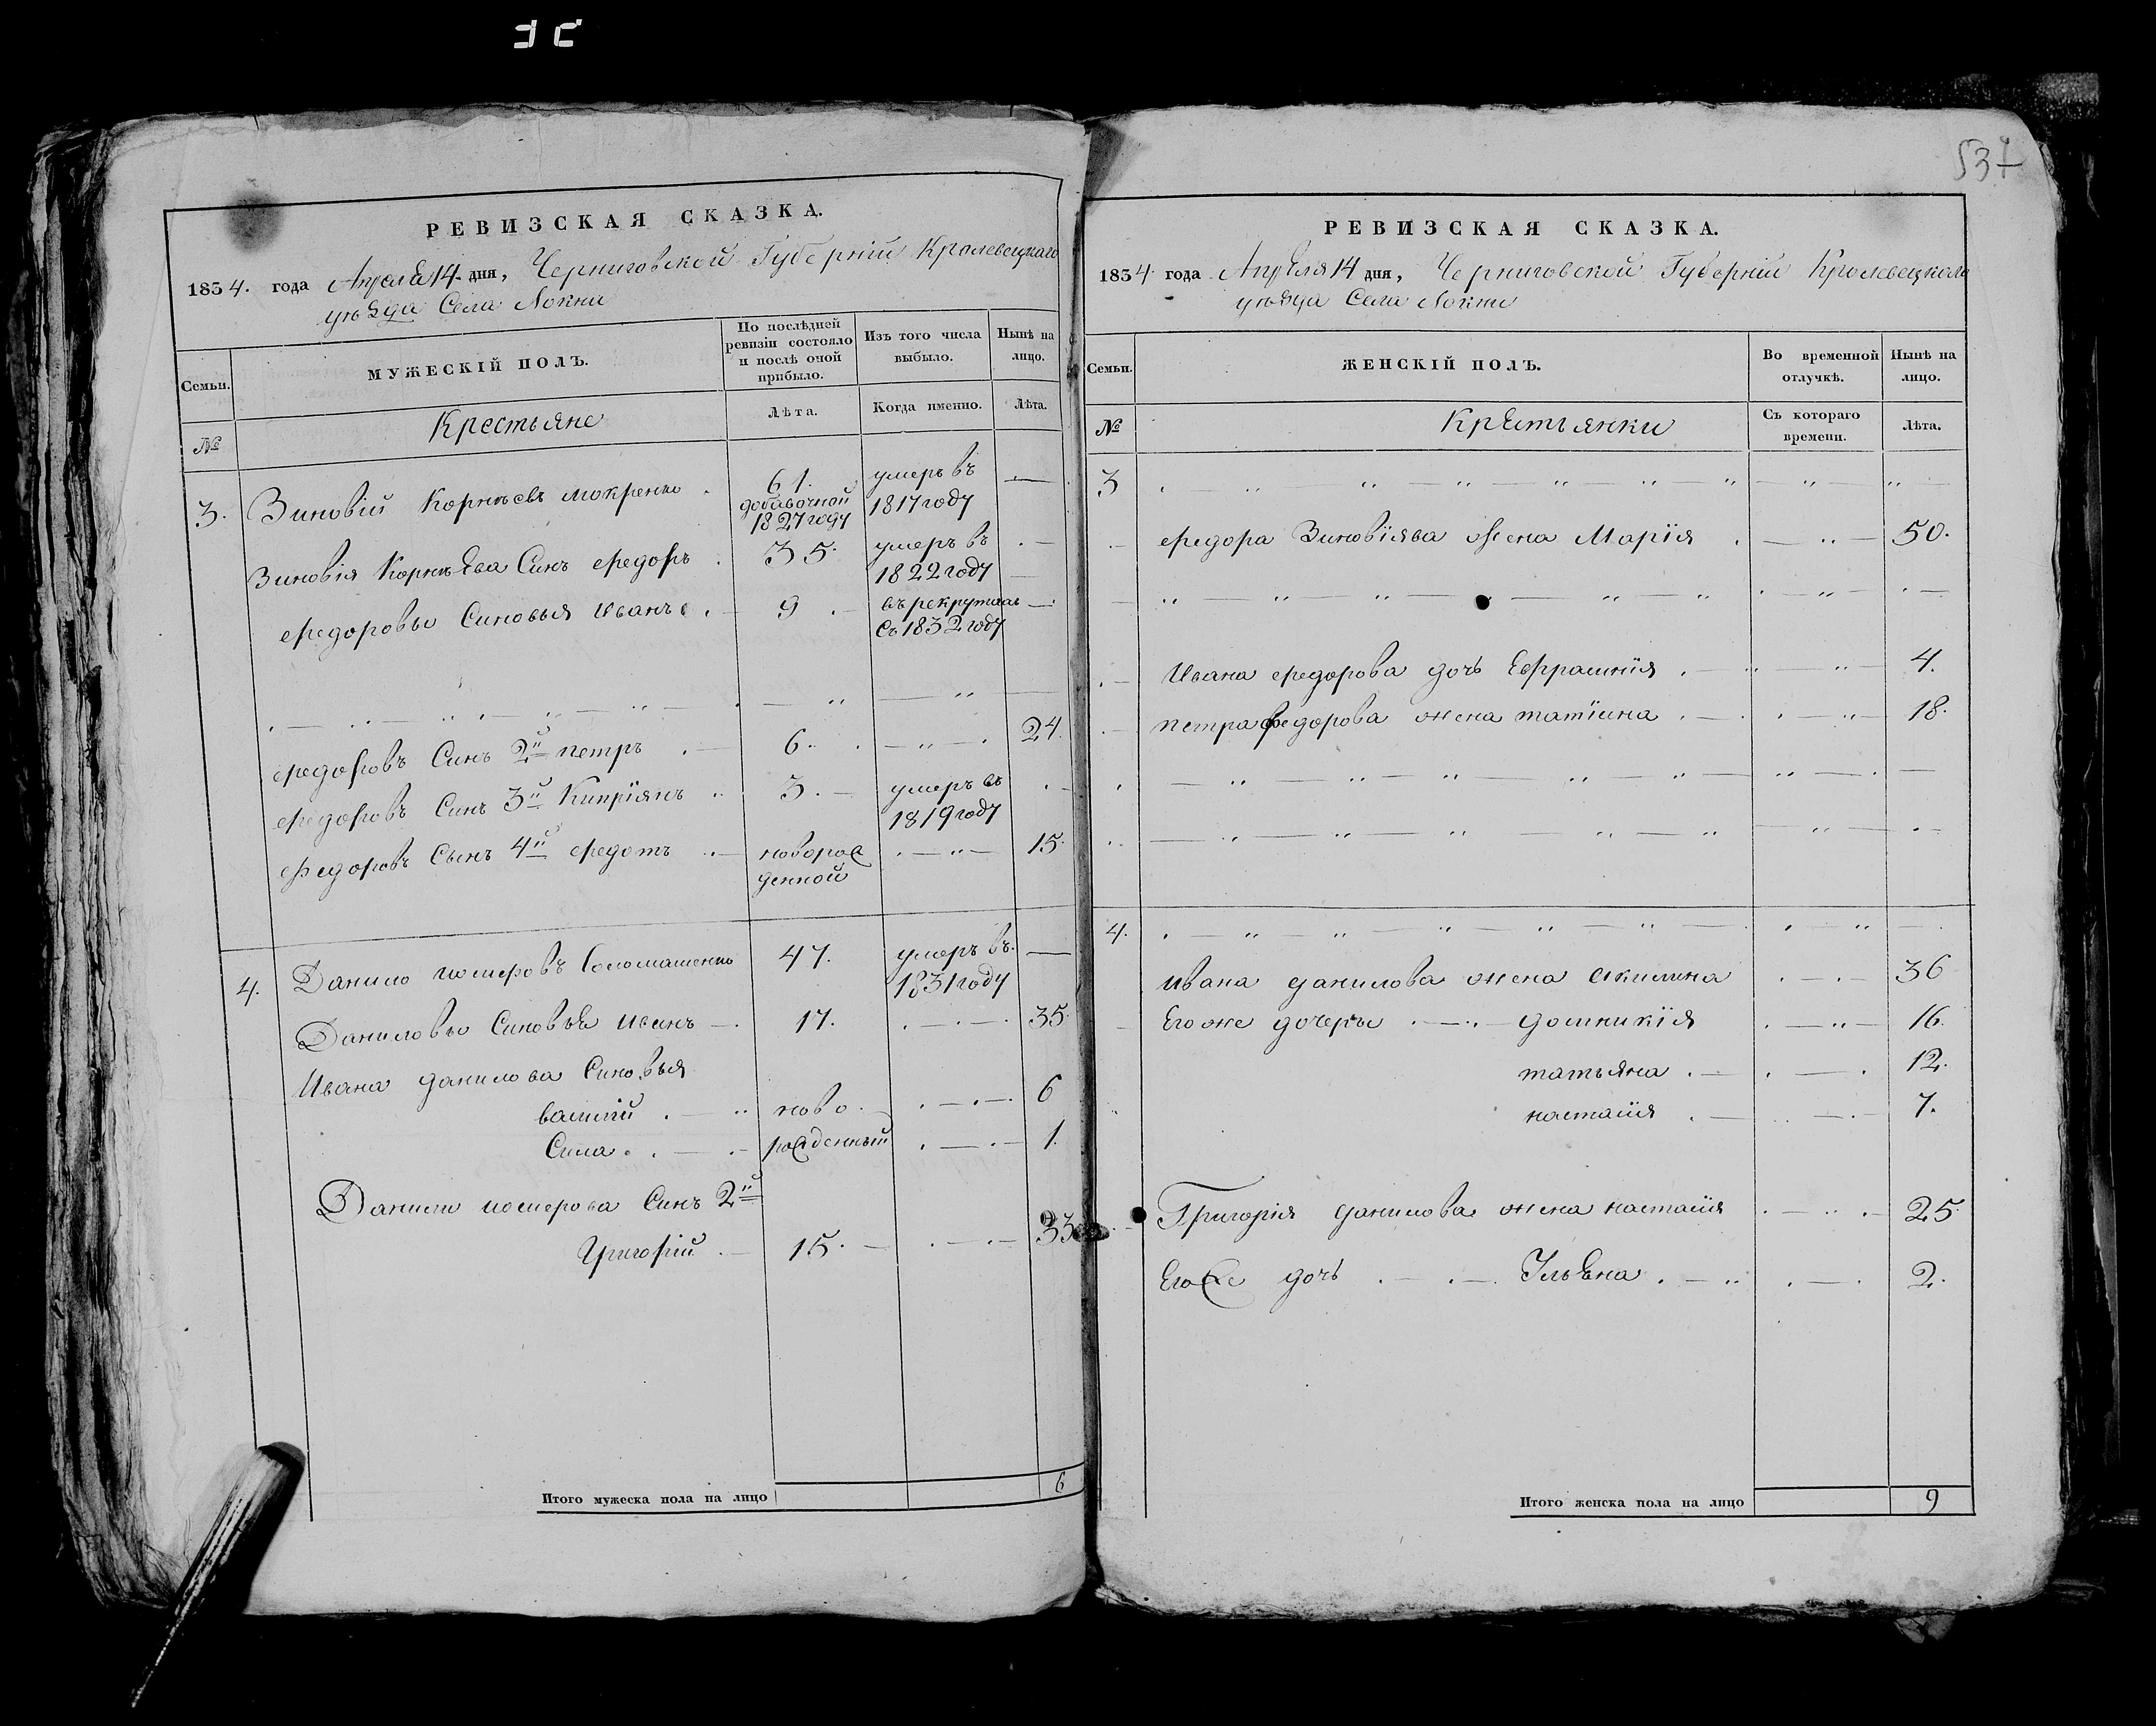 537
РЕВИЗСКАЯ СКАЗКА.
1834. года Апреля 14. дня, Черниговской Губерніи Кролевецкаго
уѣзда Села Локни
Семьи.
МУЖЕСКІЙ ПОЛЪ.
По послѣдней ревизіи состояло и послѣ оной прибыло.
Изъ того числа выбыло.
Нынѣ на лицо.
№
Крестьяне
Лѣта.
Когда именно.
Лѣта.
3. Зиновій Корнѣевъ Мокренко 61. умеръ въ
добавочной 1827 году 1817 году
Зиновія Корнѣева Синъ Федоръ 35. умеръ въ
1822 году
Федоровы Синовья Иванъ 9 въ рекрутахъ
съ 1832 году
Федоровъ Синъ 2й петръ 6. 24.
Федоровъ Синъ 3й Кипріянъ 3. умеръ въ
1819 году
Федоровъ Сынъ 4й Федотъ новорож 15.
денной
4. Данило Соломашенко 47. умеръ въ
1831 году
Даниловы Синовья Иванъ 17. 35.
Ивана данилова Синовья
василій ново 6
Сила рожденный 1.
Данили Синъ 2й
Григорій 15. 33
Итого мужеска пола на лицо 6
РЕВИЗСКАЯ СКАЗКА.
1834. года Апреля 14 дня, Черниговской Губерніи Кролевецкого
уѣзда Села Локни
Семьи.
ЖЕНСКІЙ ПОЛЪ.
Во временной отлучкѣ.
Нынѣ на лицо.
№
Крестьянки
Съ котораго времени.
Лѣта.
3
Федора Зиновіява жена Марія 50.
Ивана Федорова дочь Евфрасинія 4.
петра федорова жена татіяна 18.
4.
Ивана данилова жена Акилина 36
Его же дочеры домникія 16.
татьяна 12.
настасія 7.
Григорія данилова жена настасія 25.
Его же дочь Ульяна 2.
Итого женска пола на лицо 9